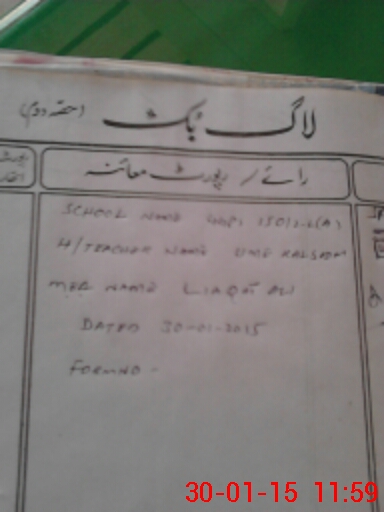 لاگ بک (حصہ دوم)
رائے / رپورٹ معائنہ
SCHOOL NAME
H/TEACHER NAME UME KALSOOM
MEA NAME LIAQAT ALI
DATED 30-01-2015
FORMNO -
30-01-15 11:59